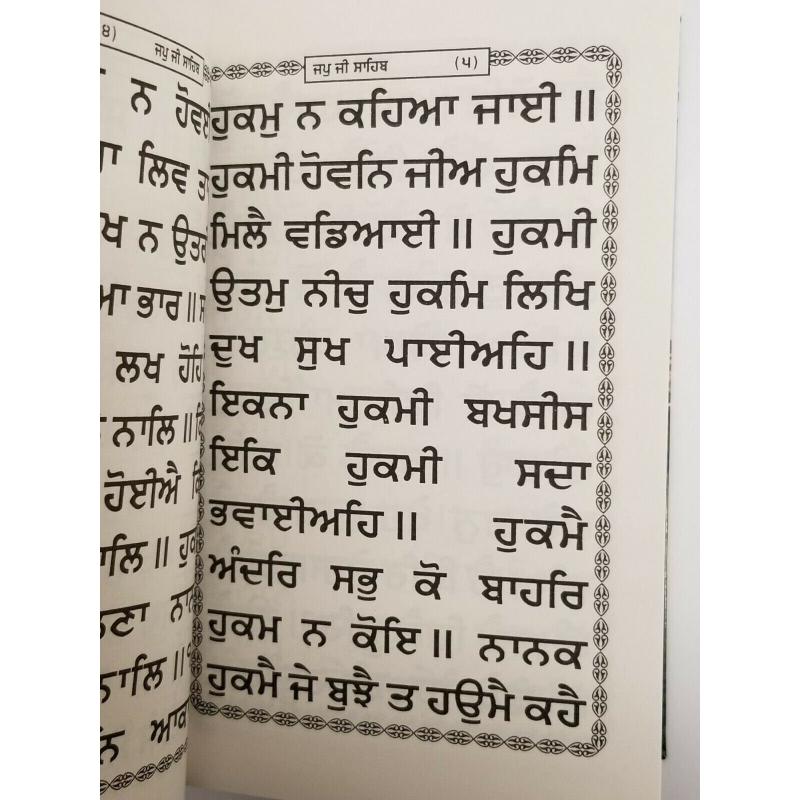 ੪)
ਜਪੁ ਜੀ ਸਾਹਿਬ
ਨ
ਲਿਵ
ਨ
ਭਾਰ ॥
ਲਖ
ਨਾਲਿ ॥
ਹੋਈਐ
ਆਕ
ਜਪੁ ਜੀ ਸਾਹਿਬ (੫)
ਹੁਕਮੁ ਨ ਕਹਿਆ ਜਾਈ ॥
ਹੁਕਮੀ ਹੋਵਨਿ ਜੀਅ ਹੁਕਮਿ
ਮਿਲੈ ਵਡਿਆਈ ॥ ਹੁਕਮੀ
ਉਤਮੁ ਨੀਚੁ ਹੁਕਮਿ ਲਿਖਿ
ਦੁਖ ਸੁਖ ਪਾਈਅਹਿ ॥
ਇਕਨਾ ਹੁਕਮੀ ਬਖਸੀਸ
ਇਕਿ ਹੁਕਮੀ ਸਦਾ
ਭਵਾਈਅਹਿ ॥ ਹੁਕਮੈ
ਅੰਦਰਿ ਸਭੁ ਕੋ ਬਾਹਰਿ
ਹੁਕਮ ਨ ਕੋਇ ॥ ਨਾਨਕ
ਹੁਕਮੈ ਜੇ ਬੁਝੈ ਤ ਹਉਮੈ ਕਹੈ